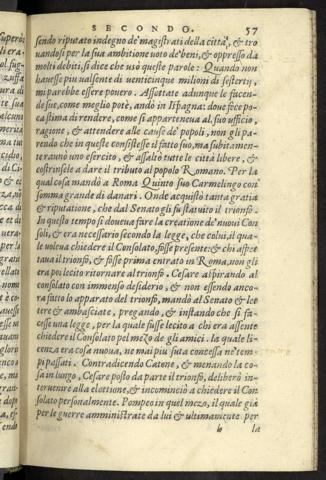 SECONDO. 57
sendo riputato indegno de' magistrati della città, & tro
uandosi per la sua ambitione uoto de' beni, & oppresso da
molti debiti, si dice che usò queste parole: Quando non
hauesse piu ualsente di uenticinque milioni di sestertij,
mi parebbe essere pouero. Assettate adunque le faccen-
de sue, come meglio potè, andò in Ispagna: doue fece po-
ca stima di rendere, come si apparteneua al suo ufficio,
ragione, & attendere alle cause de' popoli, non gli pa-
rendo che in queste consistesse il fatto suo, ma subitamen-
te raunò uno esercito, & assaltò tutte le città libere, &
costrinsele a dare il tributo al popolo Romano. Per la
qual cosa mandò a Roma Quinto suo Carmelingo con
somma grande di danari. Onde acquistò tanta gratia
& riputatione, che dal Senato gli fu statuito il trionfo.
In questo tempo si doueua fare la creatione de' nuoui Con
soli, & era necessario secondo la legge, che colui, il qua-
le uoleua chiedere il Consolato, fosse presente: & chi aspet
taua il trionfo, & fosse prima entrato in Roma, non gli
era poi lecito ritornare al trionfo. Cesare aspirando al
consolato con immenso desiderio, & non essendo anco-
ra fatto lo apparato del trionfo, mandò al Senato & let
tere & ambasciate, pregando, & instando che si fa-
cesse una legge, per la quale fusse lecito a chi era assente
chiedere il Consolato pel mezo de gli amici. la quale li-
cenza era cosa nuoua, ne mai piu suta concessa ne' tem-
pi passati. Contradicendo Catone, & menando la co-
sa in lungo, Cesare posto da parte il trionfo, deliberò in-
teruenire alla elettione, & incominciò a chiedere il Con
solato personalmente. Pompeo in quel mezo, il quale già
per le guerre amministrate da lui & ultimamente per
h la